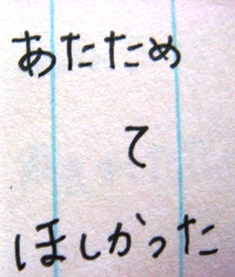 あたため
て
ほしかった